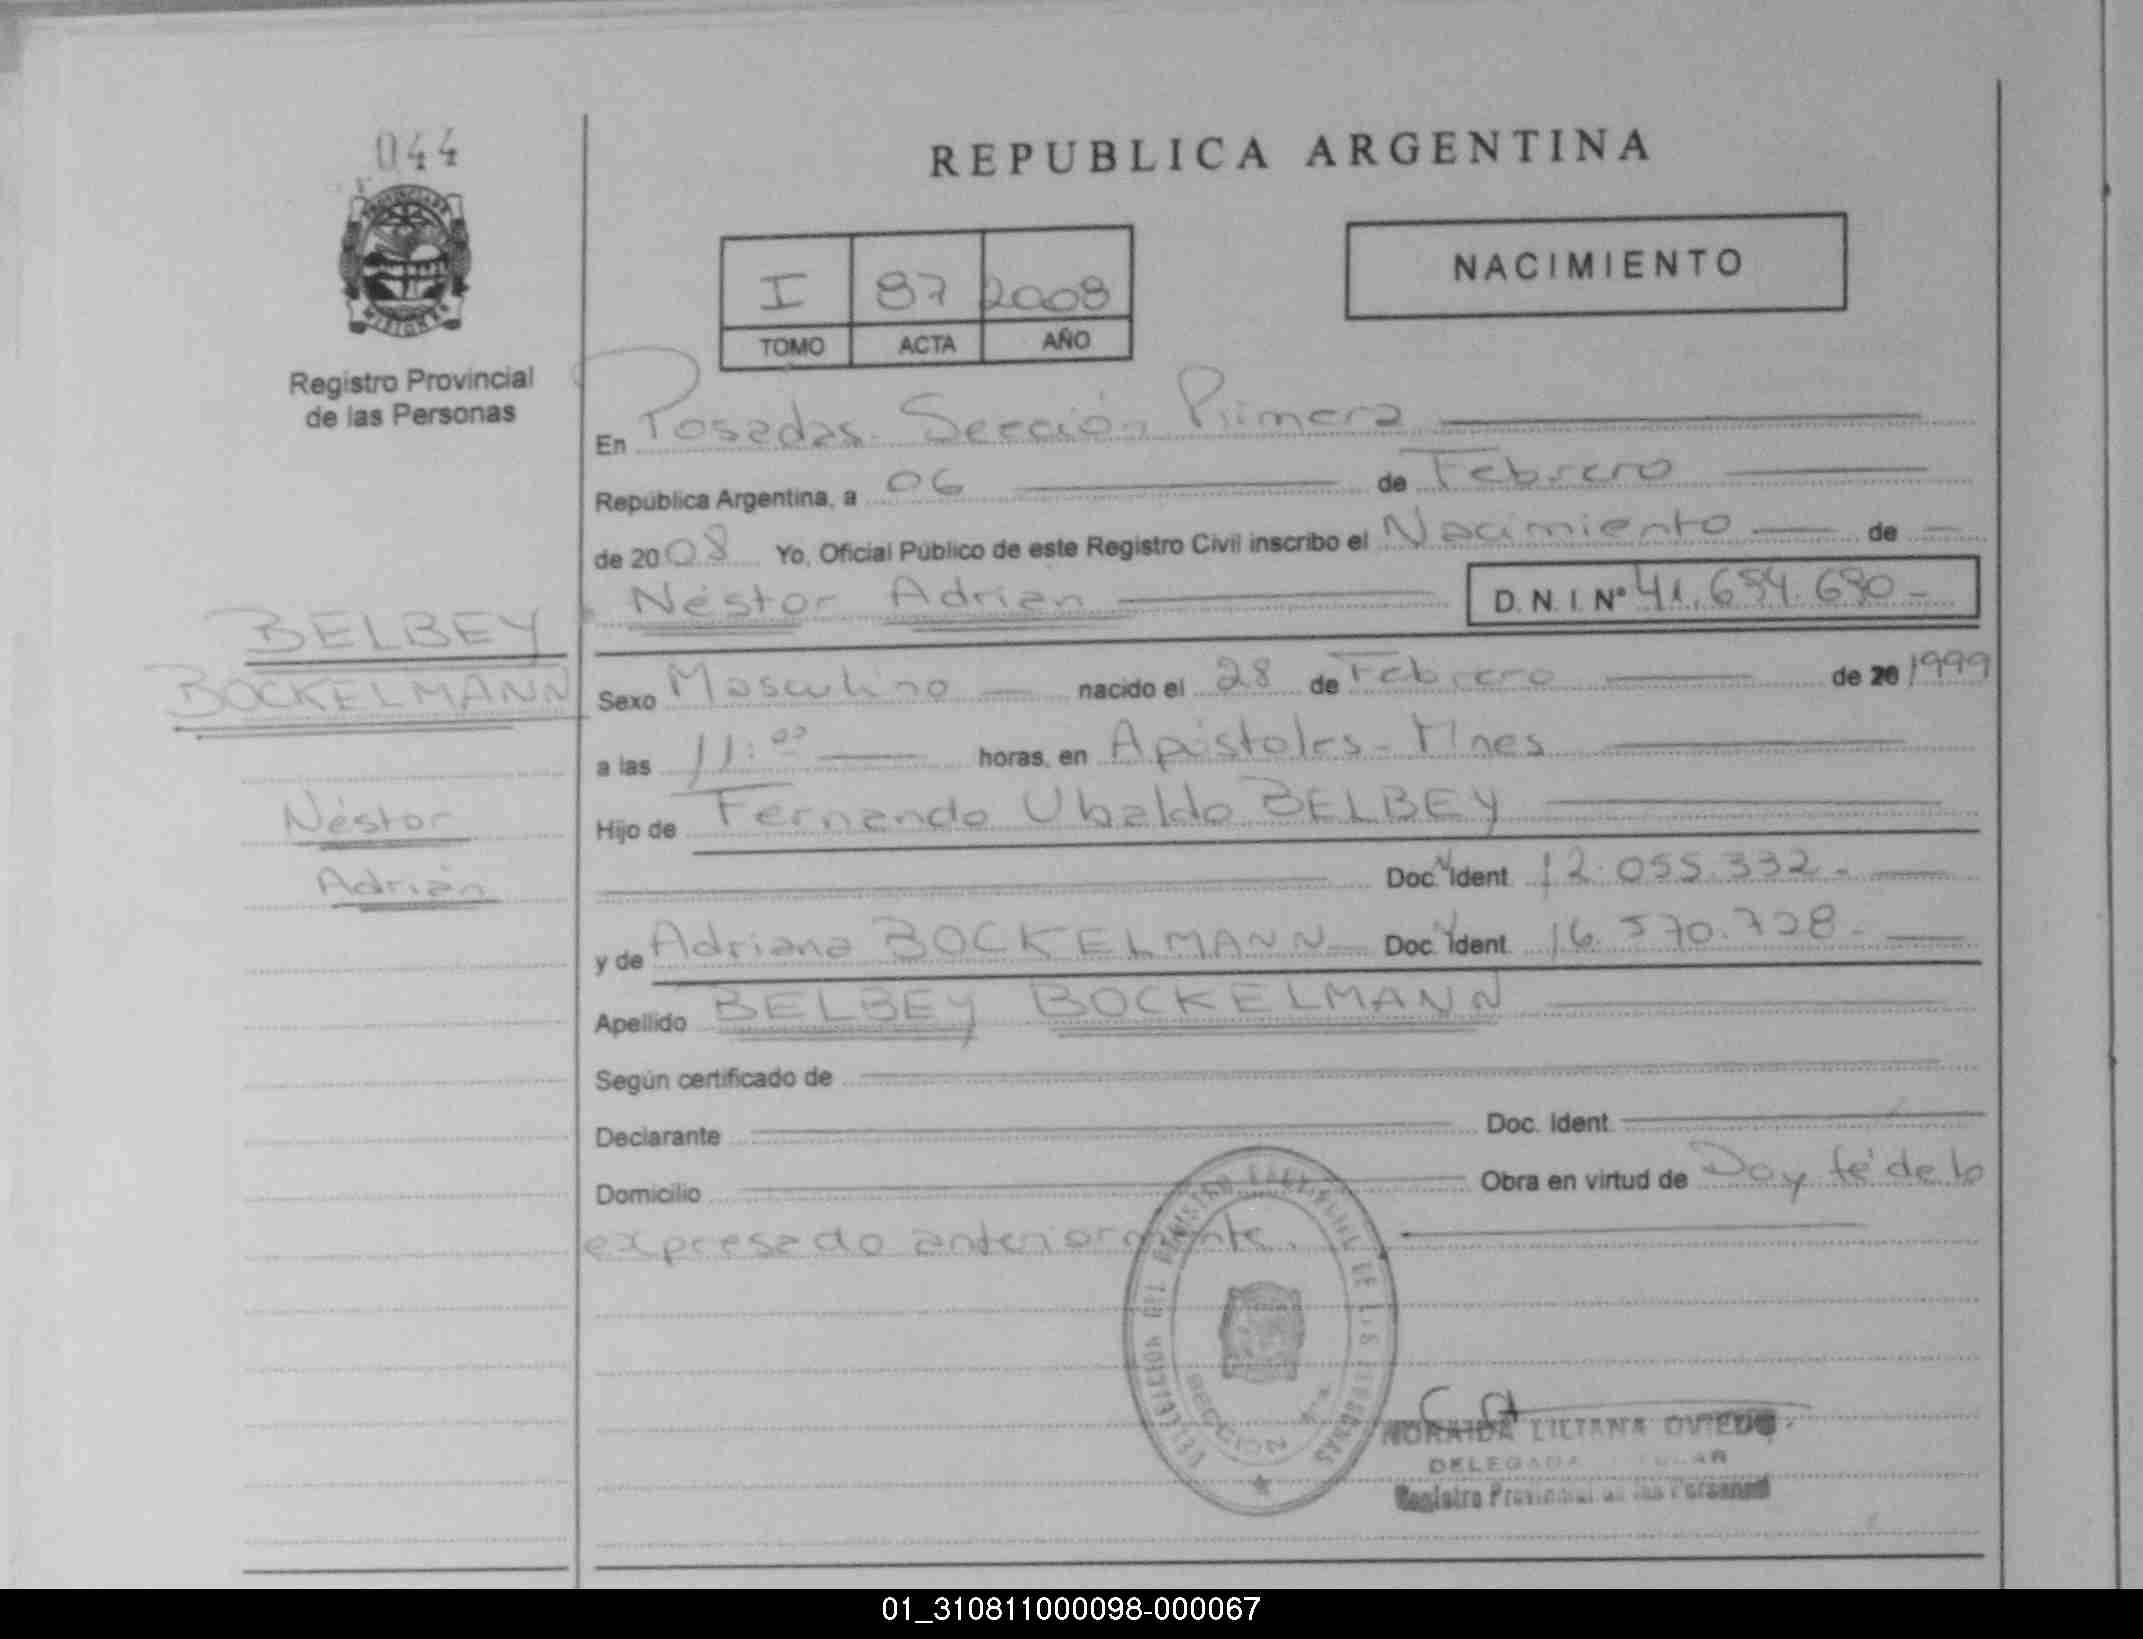 044
REPUBLICA ARGENTINA
NACIMIENTO
I 87 2008
TOMO ACTA AÑO
PROVINCIA DE
MISIONES
Registro Provincial
de las Personas
En Posadas. Sección Primera
República Argentina, a 06 de Febrero
de 2008 Yo, Oficial Público de este Registro Civil inscribo el Nacimiento de
Néstor Adrián D.N.I. Nº 41.654.680
BELBEY
BOCKELMANN
Néstor
Adrián
Sexo Masculino nacido el 28 de Febrero de 20 1999
a las 11:00 horas, en Apóstoles - Mnes
Hijo de Fernando Ubaldo BELBEY
Doc. Ident 12.055.332
y de Adriana BOCKELMANN Doc. Ident 16.570.728
Apellido BELBEY BOCKELMANN
Según certificado de
Declarante Doc. Ident
Domicilio Obra en virtud de Doy fé de lo
expresado anteriormente.
DELEGACION DEL REGISTRO PROVINCIAL DE LAS PERSONAS
SECCION 1ra.
NORAIDA LILIANA OVIEDO
DELEGADA TITULAR
Registro Provincial de las Personas
01_310811000098-000067